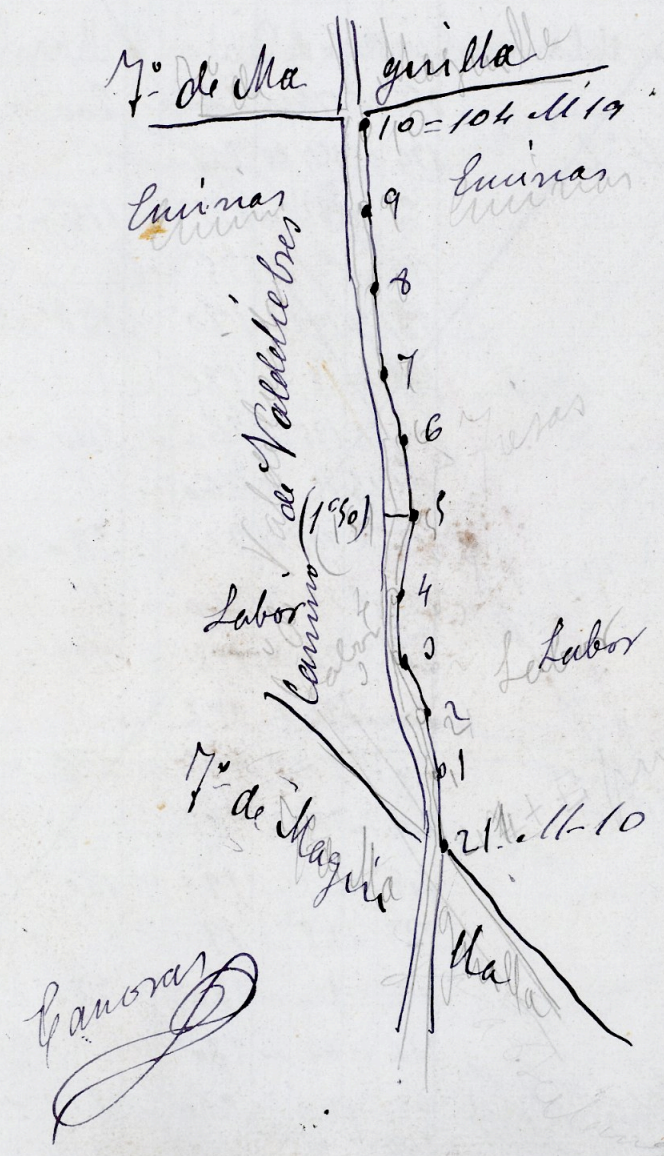 Tº de Ma guilla
10=104 M 19
Encinas
Encinas
9
8
7
6
(1º50)
5
4
3
2
1
21 M-10
Camino de Valdeliebres
Labor
Labor
Tº de Magui
lla
Canovas